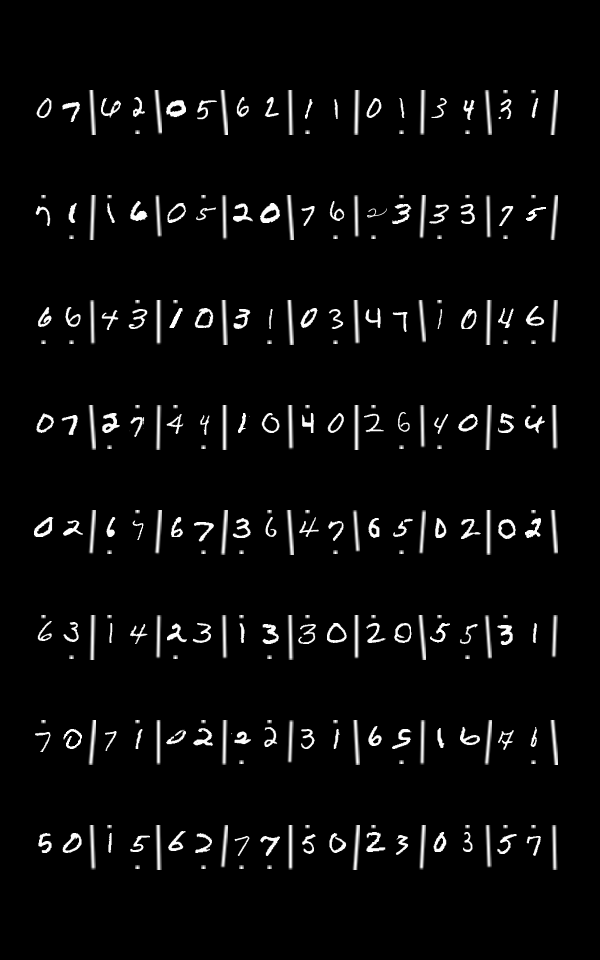 0 7 | 6 2̣ | 0 5 | 6 2 | 1̣ 1 | 0 1̣ | 3 4̣ | 3̇ 1̇ |
7̇ 1̣ | 1̇ 6 | 0 5̇ | 2 0 | 7 6̣ | 2̣ 3̇ | 3̣ 3 | 7̣ 5̇ |
6̣ 6̣ | 4 3̇ | 1̇ 0 | 3 1̣ | 0 3̣ | 4 7 | 1̇ 0 | 4̣ 6̣ |
0 7 | 2̣ 7̇ | 4̇ 4̣ | 1 0 | 4̇ 0 | 2̇ 6̣ | 4̣ 0 | 5 4̇ |
0 2 | 6̣ 7̇ | 6 7̣ | 3̣ 6̇ | 4̇ 7̣ | 6 5̣ | 0 2 | 0 2̇ |
6̇ 3̣ | 1̇ 4 | 2̣ 3 | 1̇ 3̣ | 3̇ 0 | 2̇ 0 | 5̇ 5̣ | 3̇ 1 |
7̇ 0 | 7 1̇ | 0 2̇ | 2̣ 2̇ | 3 1̇ | 6 5̣ | 1 6 | 7 6̣ |
5 0 | 1̇ 5̣ | 6 2̣ | 7̣ 7̣ | 5̇ 0 | 2̇ 3 | 0 3̇ | 5̇ 7̇ |